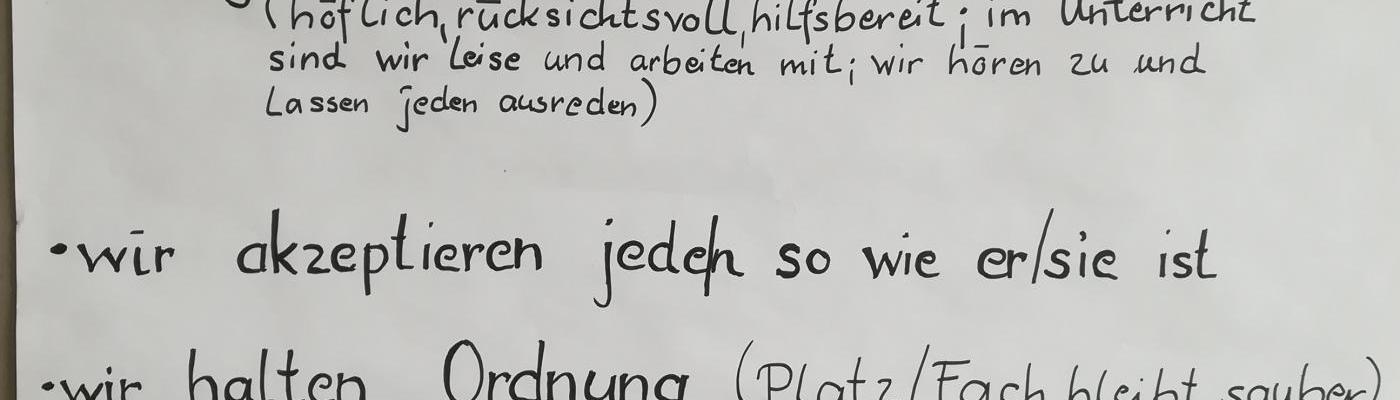 (höflich, rücksichtsvoll, hilfsbereit; im Unterricht
sind wir leise und arbeiten mit; wir hören zu und
Lassen jeden ausreden)
•wir akzeptieren jeden so wie er/sie ist
•wir halten Ordnung (Platz/Fach bleibt sauber)